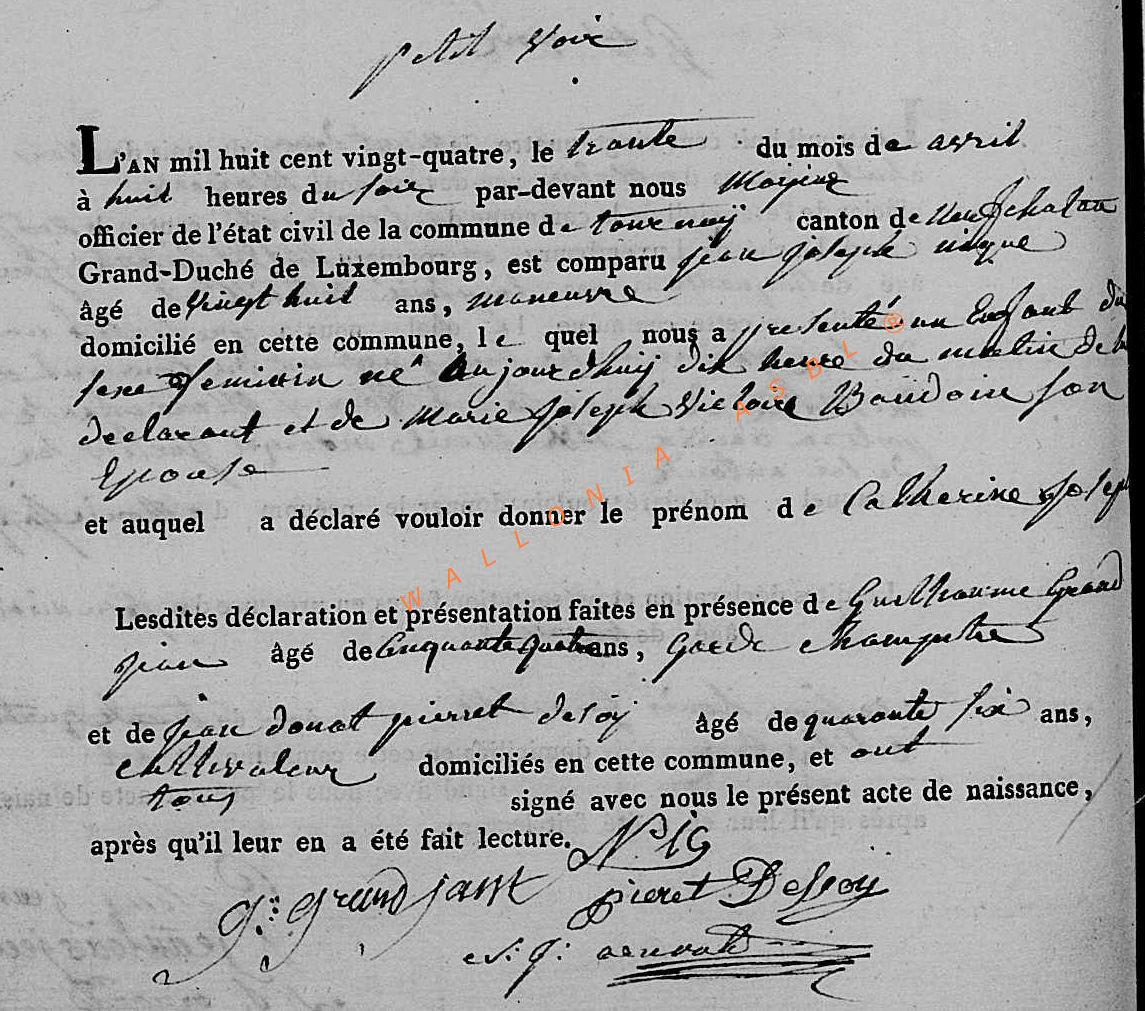 petit Voir
L'AN mil huit cent vingt-quatre, le trante du mois de avril
à huit heures du soir par-devant nous
officier de l'état civil de la commune de tournay canton de Neufchatau
Grand-Duché de Luxembourg, est comparu jean joseph
âgé de vingt huit ans, maneuvre
domicilié en cette commune, le quel nous a presenté un Enfant du
sexe feminin né aujourdhuy dix heure du matin de lui
declarant et de Marie Joseph Victoire Baudoin son
Epouse
et auquel a déclaré vouloir donner le prénom de Catherine Joseph
Lesdites déclaration et présentation faites en présence de Guilhaume Grand
jean âgé de Cinquante quatre ans, Garde champetre
et de jean donat pierret desoy âgé de quarante six ans,
cultivateur domiciliés en cette commune, et ont
tous signé avec nous le présent acte de naissance,
après qu'il leur en a été fait lecture.
g: grandjean
pieret Desoy
WALLONIA ASBL ®